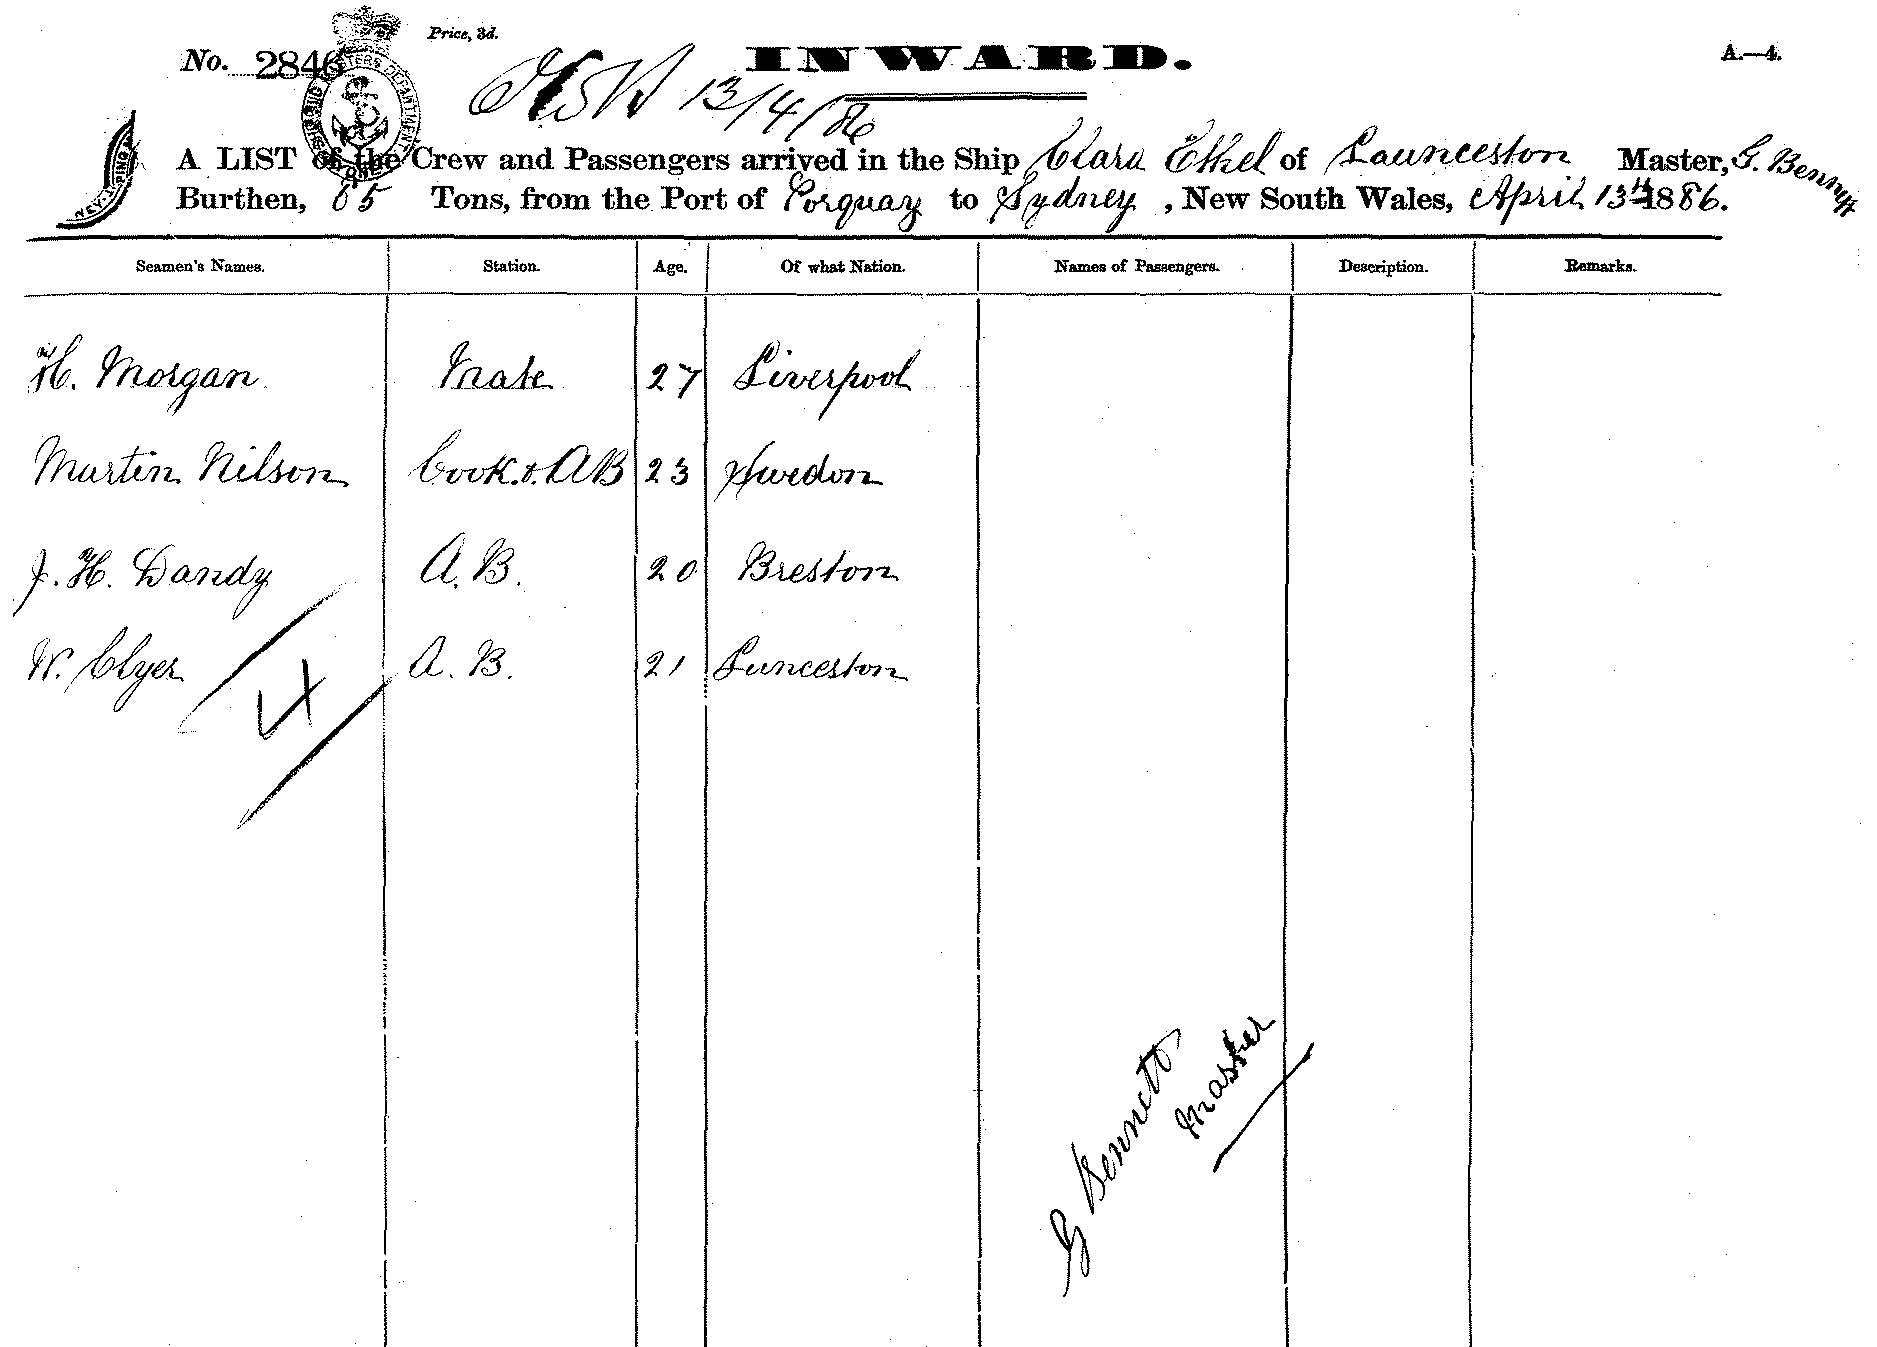 Price, 3d.
No. 2846 INWARD. A.—4.
13/4/86
A LIST of the Crew and Passengers arrived in the Ship Clara Ethel of Launceston Master, G. Bennett
Burthen, 65 Tons, from the Port of Torquay to Sydney, New South Wales, April 13th 1886.
Seamen's Names. Station. Age. Of what Nation. Names of Passengers. Description. Remarks.
H. Morgan Mate 27 Liverpool
Martin Nilson Cook & AB 23 Swedon
J. H. Dandy A.B. 20 Breston
W. Clyer A.B. 21 Lunceston
4
G Bennett
Master